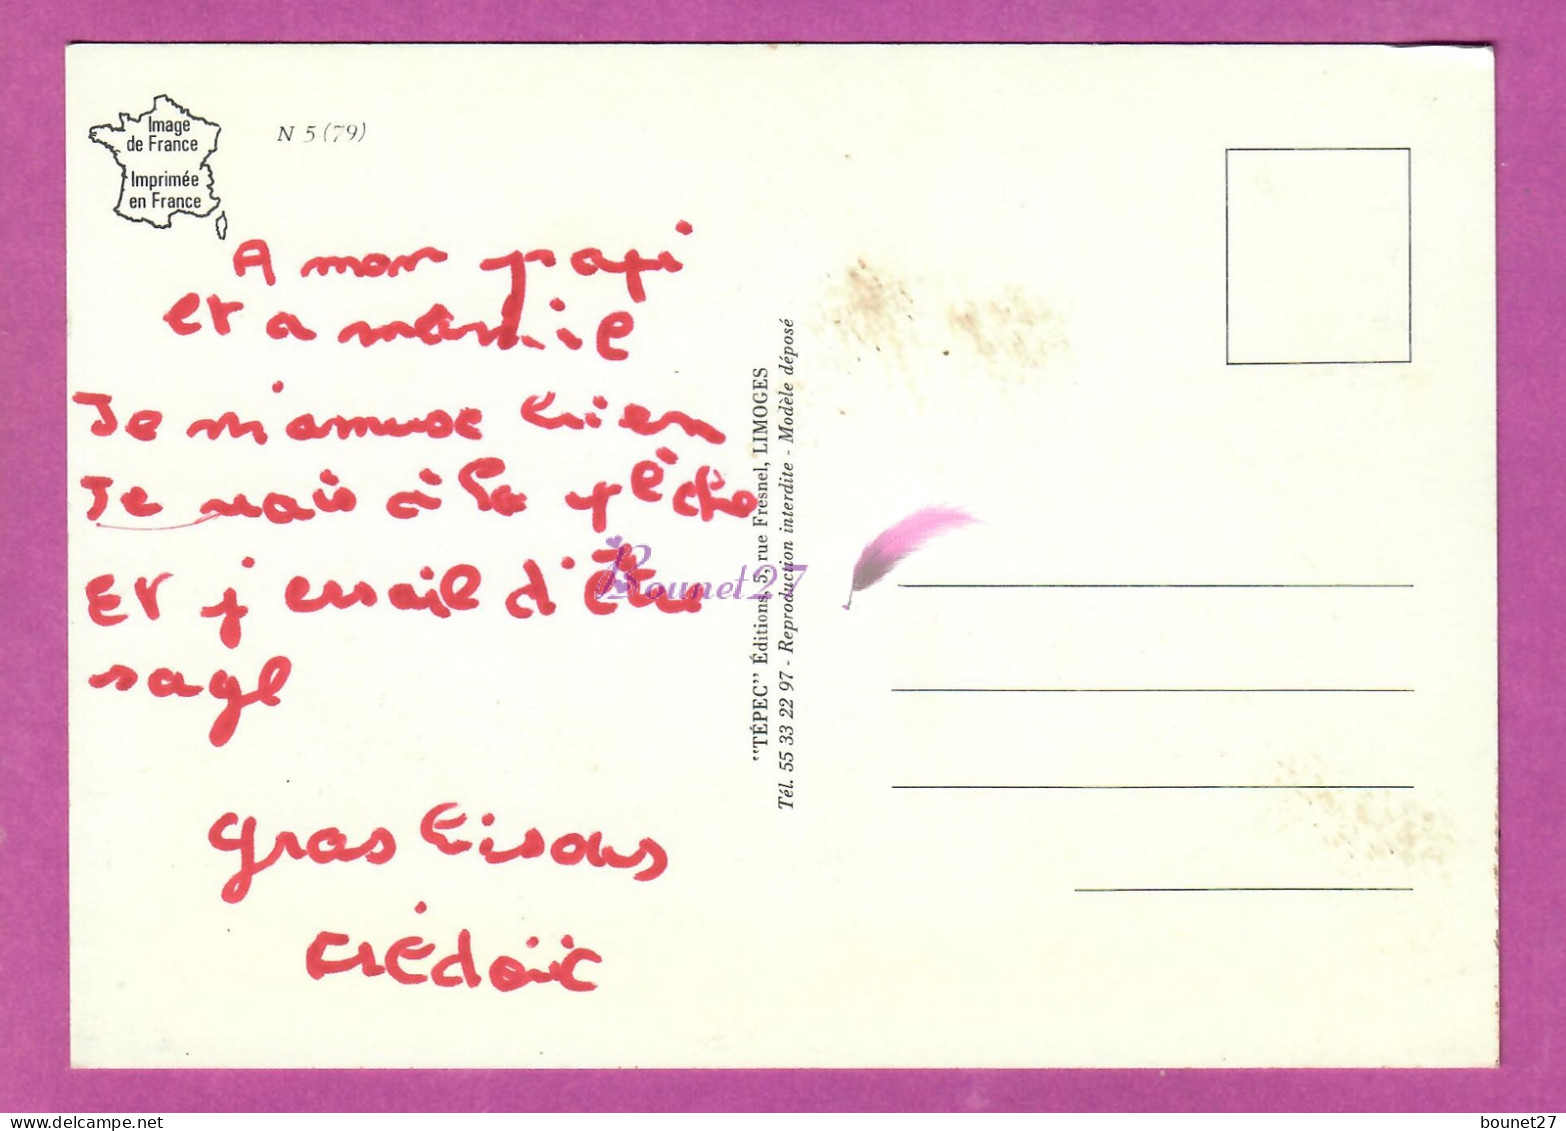 Image
de France
Imprimée
en France
N 5 (79)
A mon papi
et a mamie
Je m'amuse bien
Je vais à la pêche
Et j'essaie d'être
sage
gras bisous
"TÉPEC" Éditions, 5, rue Fresnel, LIMOGES
Tél. 55 33 22 97 - Reproduction interdite - Modèle déposé
Bounet27
bounet27